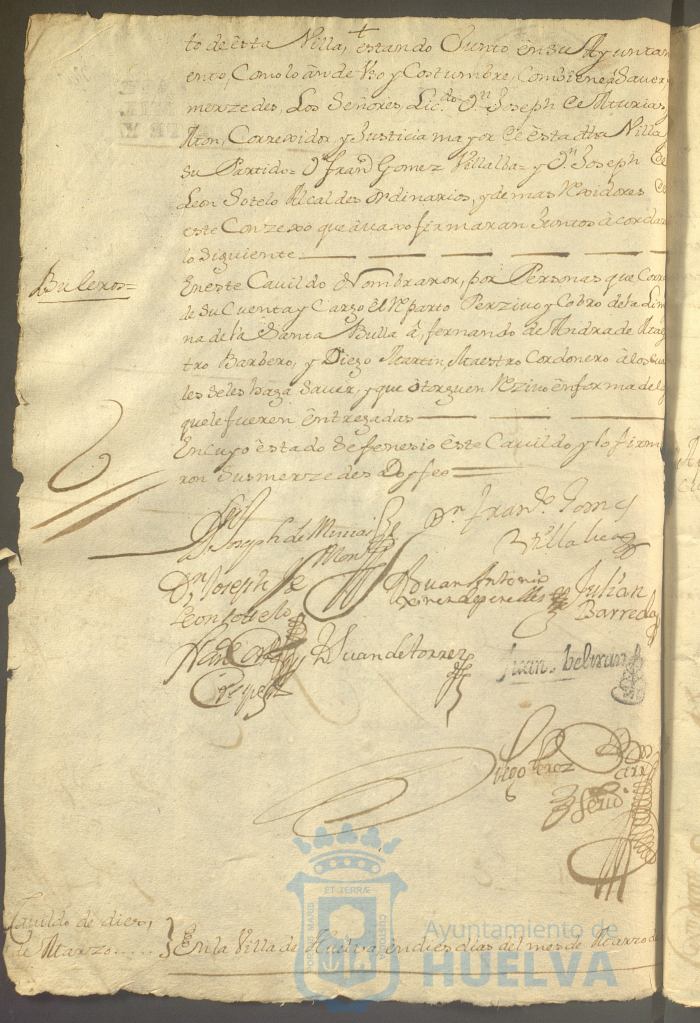 to de esta Villa, estando Junto en su Ayuntam
ento, Como lo an de Vso y Costumbre, Combiene a Saver
merzedes, Los Señores, Lic.do Dn Joseph de
Mon, Correxidor y Justicia mayor de esta dha Villa
Su Partido= Dn Franco Gomez Villalla= y Dn Joseph de
Leon Sotelo Alcaldes ordinarios, y demas Rexidores de
este Conzexo que auaxo firmaran Juntos acorda
lo Siguiente
Buleros=
En este Cavildo Nombraron, por Personas que Corra
de Su Cuenta y Cargo El Reparto Perzivo y Cobro de la Lim
na de la Santa Bulla a, fernando de Andrade Mae
tro Barbero, y Diego Martin, Maestro Cordonero a los qua
les se les haga Saver, y que otorguen Rezivo en forma de lo
que le fueren entregadas
En cuyo estado se fenesio este Cavildo y lo firm
ron Sus merzedes Doy feo
Dn Joseph de
Mon
Dn Franco Gomez
Villa
Dn Joseph de
Leon Sotelo
Juan Antonio
Julian
Barreda
Crespo
Juan de torres
Juan Beltran
Diego Perez
Cavildo de diez
de Marzo.....
En la Villa de Huelva, en dies dias del mes de Marzo de
PORTUS MARIS
ET TERRÆ
CUSTODIA
Ayuntamiento de
HUELVA